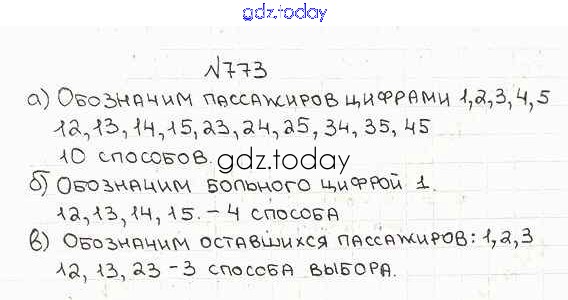 gdz.today
№773
а) Обозначим пассажиров цифрами 1,2,3,4,5
12, 13, 14, 15, 23, 24, 25, 34, 35, 45
10 способов.
gdz.today
б) Обозначим больного цифрой 1.
12, 13, 14, 15. – 4 способа
в) Обозначим оставшихся пассажиров: 1, 2, 3
12, 13, 23 – 3 способа выбора.